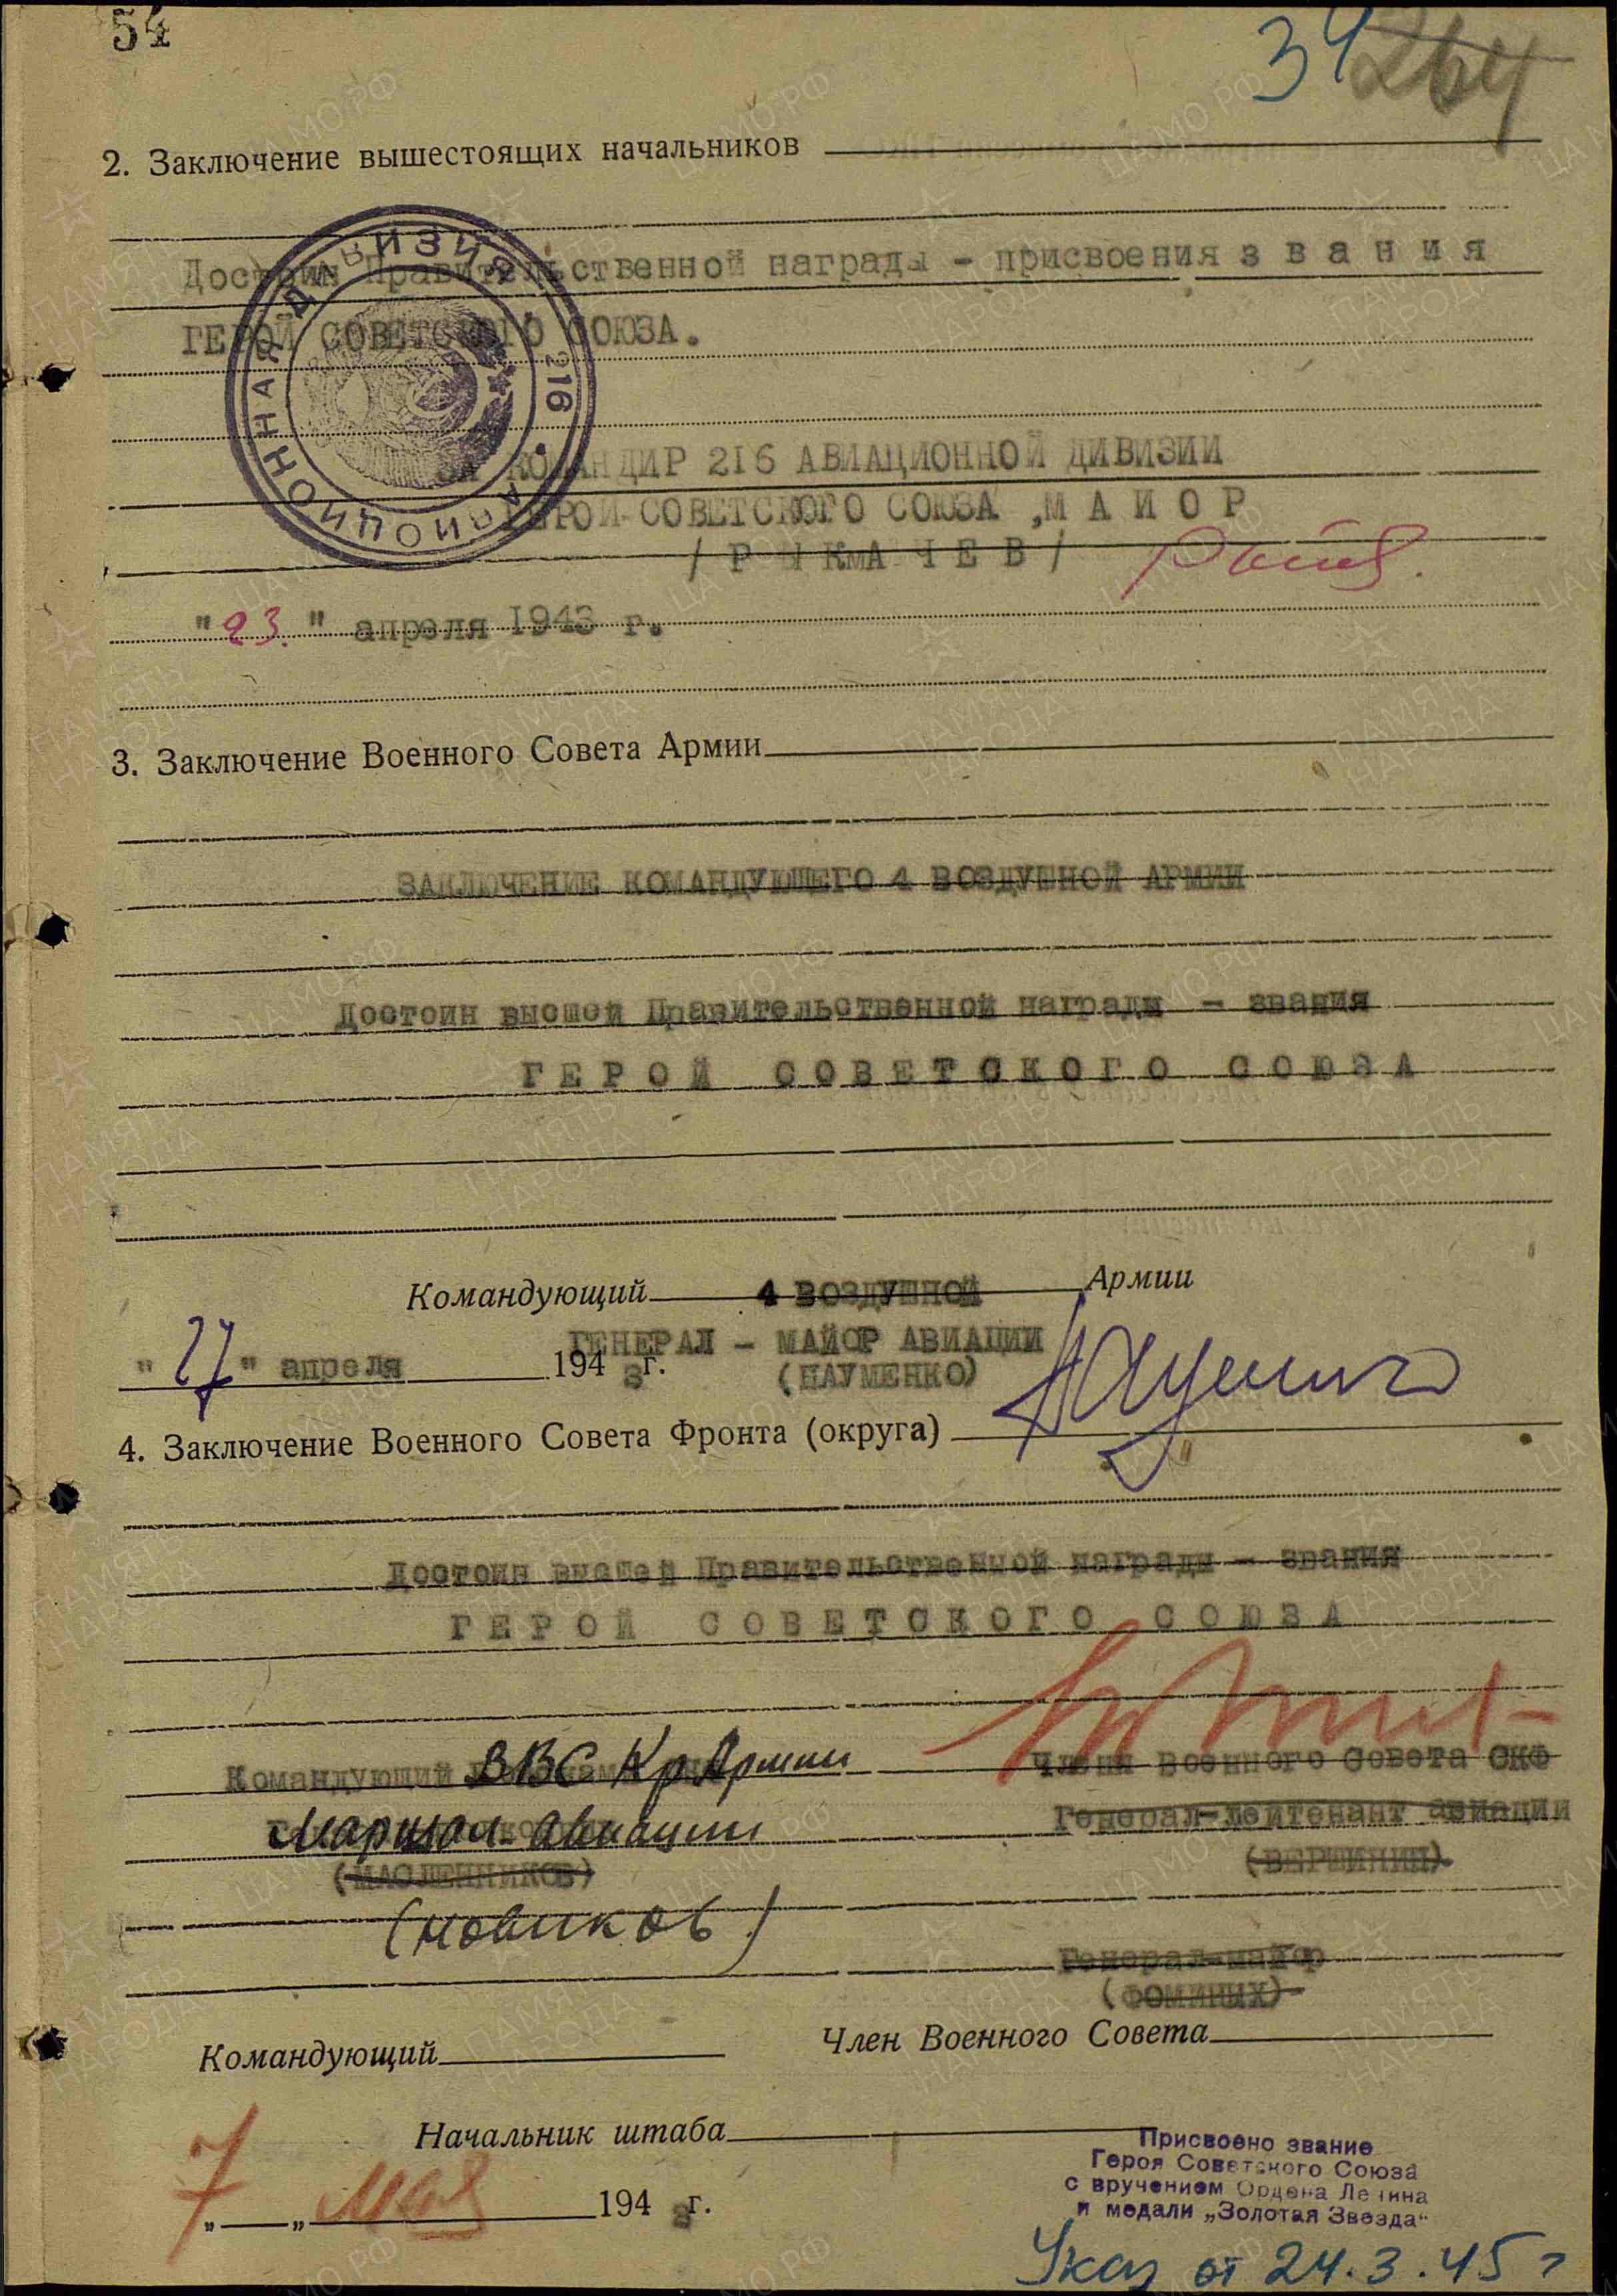 54
34 264
2. Заключение вышестоящих начальников
Достоин Правительственной награды - присвоения з в а н и я
ГЕРОЙ СОВЕТСКОГО СОЮЗА.
АВИАЦИОННАЯ ДИВИЗИЯ 216
КОМАНДИР 216 АВИАЦИОННОЙ ДИВИЗИИ
ГЕРОЙ СОВЕТСКОГО СОЮЗА ,М А И О Р
"23." апреля 1943 г.
3. Заключение Военного Совета Армии
ЗАКЛЮЧЕНИЕ КОМАНДУЮЩЕГО 4 ВОЗДУШНОЙ АРМИИ
Достоин высшей Правительственной награды - звания
Г Е Р О Й С О В Е Т С К О Г О С О Ю З А
Командующий 4 ВОЗДУШНОЙ Армии
ГЕНЕРАЛ - МАЙОР АВИАЦИИ
"27" апреля 1943 г. (НАУМЕНКО)
4. Заключение Военного Совета Фронта (округа)
Достоин высшей Правительственной награды - звания
Г Е Р О Й С О В Е Т С К О Г О С О Ю З А
Командующий ВВС Кр Армии Члены Военного Совета СКФ
Маршал авиации Генерал-лейтенант авиации
(МАСЛЕННИКОВ) (ВЕРШИНИН)
(Новиков)
Генерал-майор
(ФОМИНЫХ)
Командующий Член Военного Совета
Начальник штаба
Присвоено звание
Героя Советского Союза
с вручением Ордена Ленина
и медали „Золотая Звезда"
„7„ мая 1943 г.
Указ от 24.3.45 г